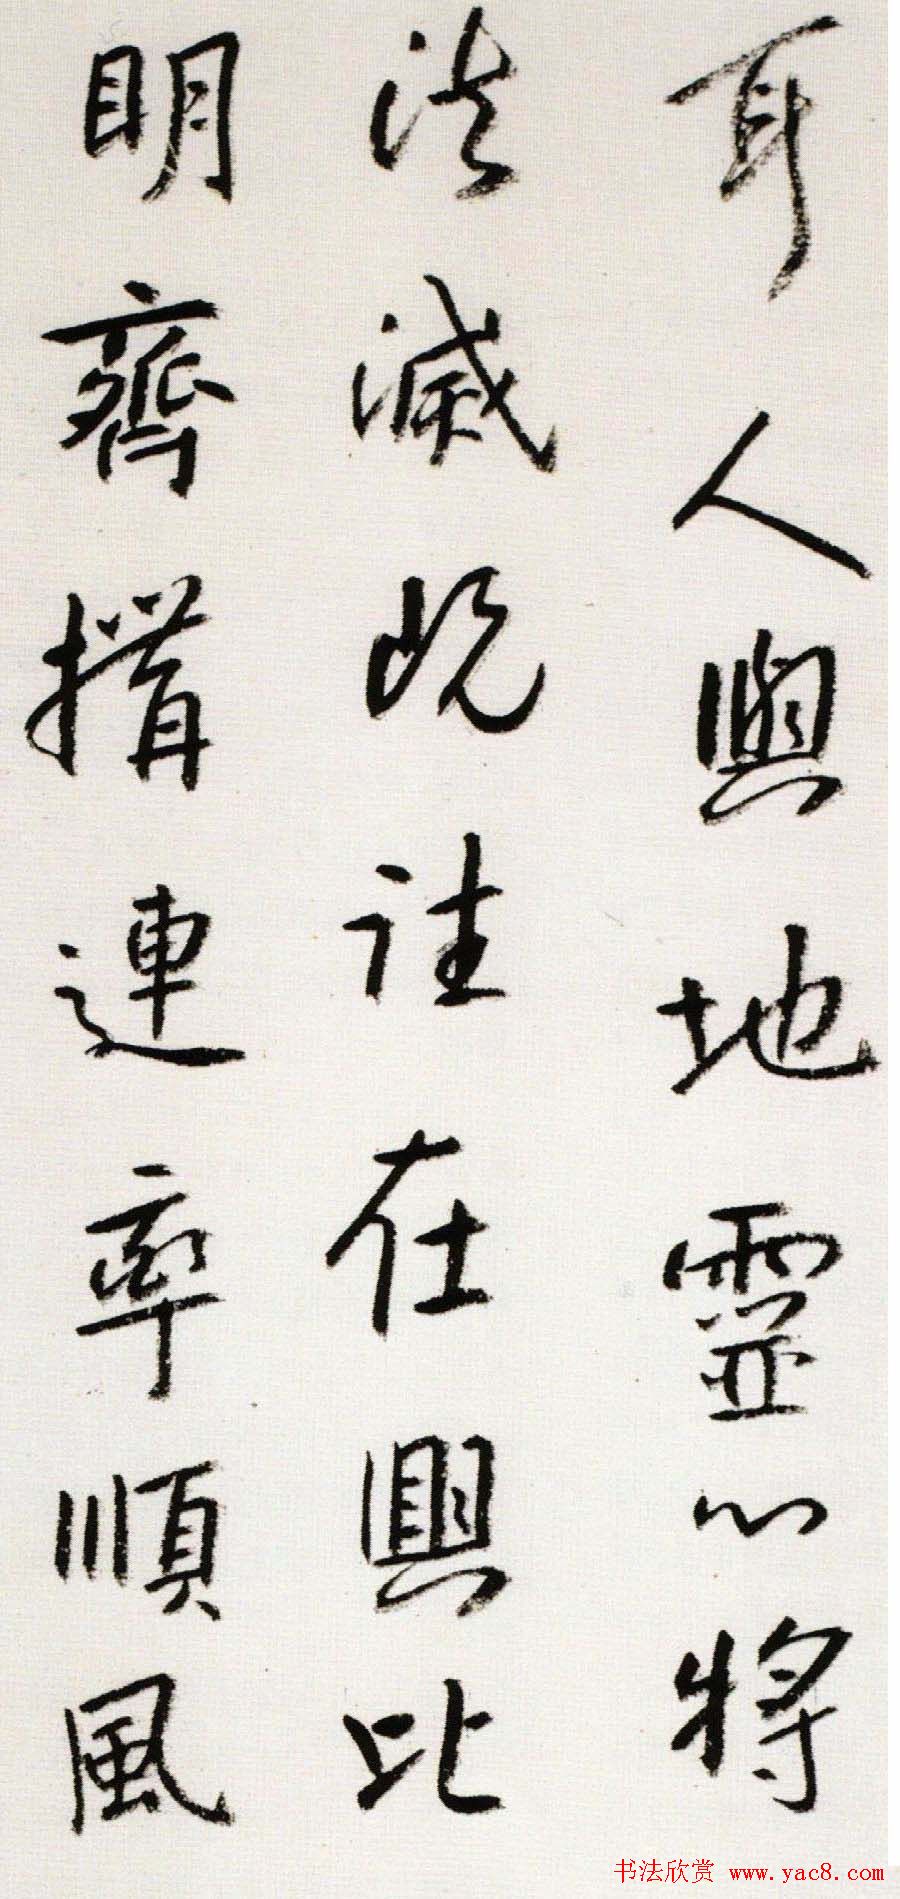 耳人與地靈心將
法滅既詿在興比
明齊揖連率順風
书法欣赏 www.yac8.com